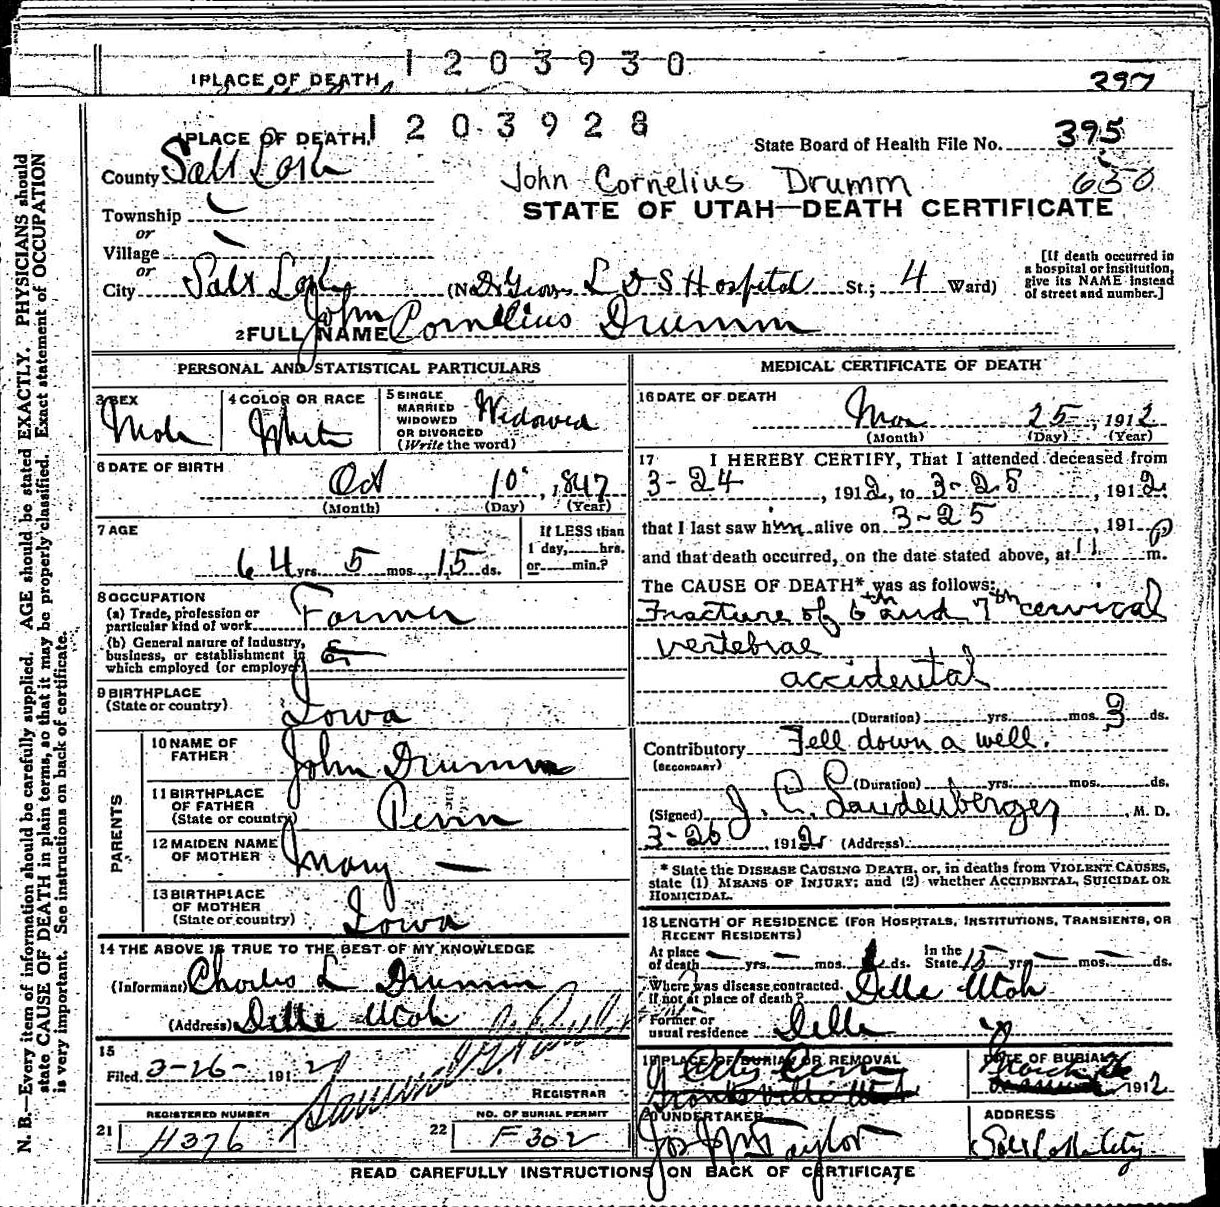 1203930
1 PLACE OF DEATH
397
1203928
1 PLACE OF DEATH
State Board of Health File No. 395
County Salt Lake
John Cornelius Drumm 650
STATE OF UTAH—DEATH CERTIFICATE
Township
or
Village
or
City Salt Lake (No. L D S Hospital St.; 4 Ward)
[If death occurred in a hospital or institution, give its NAME instead of street and number.]
2 FULL NAME John Cornelius Drumm
PERSONAL AND STATISTICAL PARTICULARS
3 SEX Male
4 COLOR OR RACE White
5 SINGLE MARRIED WIDOWED OR DIVORCED (Write the word) Widowed
6 DATE OF BIRTH
Oct 10, 1847
(Month) (Day) (Year)
7 AGE
64 yrs. 5 mos. 15 ds.
If LESS than 1 day, hrs. or min.?
8 OCCUPATION
(a) Trade, profession or particular kind of work Farmer
(b) General nature of industry, business, or establishment in which employed (or employer)
9 BIRTHPLACE
(State or country) Iowa
PARENTS
10 NAME OF FATHER John Drumm
11 BIRTHPLACE OF FATHER (State or country) Penn
12 MAIDEN NAME OF MOTHER Mary —
13 BIRTHPLACE OF MOTHER (State or country) Iowa
14 THE ABOVE IS TRUE TO THE BEST OF MY KNOWLEDGE
(Informant) Charles L Drumm
(Address) Delle Utah
15
Filed 3-26- 1912
REGISTRAR
REGISTERED NUMBER
21 H376
NO. OF BURIAL PERMIT
22 F302
MEDICAL CERTIFICATE OF DEATH
16 DATE OF DEATH
Mar 25, 1912
(Month) (Day) (Year)
17 I HEREBY CERTIFY, That I attended deceased from
3-24, 1912, to 3-25, 1912
that I last saw him alive on 3-25, 191
and that death occurred, on the date stated above, at 11 P m.
The CAUSE OF DEATH* was as follows:
Fracture of 6th and 7th cervical
vertebrae
accidental
(Duration) yrs. mos. 3 ds.
Contributory Fell down a well.
(SECONDARY)
(Duration) yrs. mos. ds.
(Signed) J. C. Landenberger, M. D.
3-26 1912 (Address)
* State the DISEASE CAUSING DEATH, or, in deaths from VIOLENT CAUSES, state (1) MEANS OF INJURY; and (2) whether ACCIDENTAL, SUICIDAL OR HOMICIDAL.
18 LENGTH OF RESIDENCE (FOR HOSPITALS, INSTITUTIONS, TRANSIENTS, OR RECENT RESIDENTS)
At place of death — yrs. — mos. ds. In the State 15 yrs. — mos. — ds.
Where was disease contracted, if not at place of death? Delle Utah
Former or usual residence Delle
19 PLACE OF BURIAL OR REMOVAL
DATE OF BURIAL
March 26 1912
20 UNDERTAKER
Jos Wm Taylor
ADDRESS
Salt Lake City
READ CAREFULLY INSTRUCTIONS ON BACK OF CERTIFICATE
N. B.—Every item of information should be carefully supplied. AGE should be stated EXACTLY. PHYSICIANS should
state CAUSE OF DEATH in plain terms, so that it may be properly classified. Exact statement of OCCUPATION
is very important. See instructions on back of certificate.